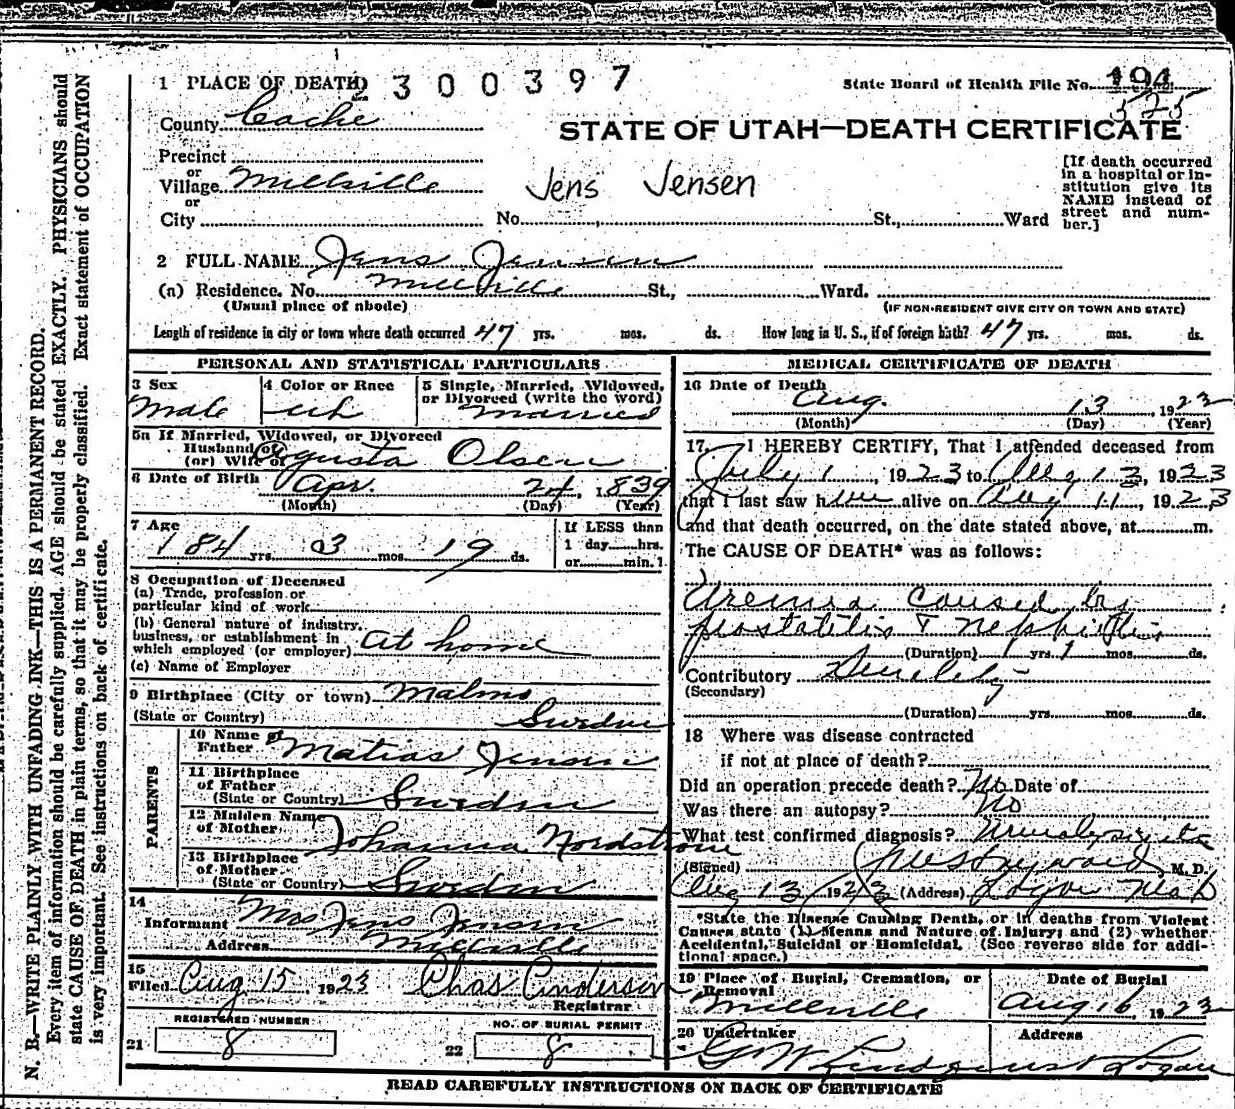 1 PLACE OF DEATH 2 3 0 0 3 9 7
State Board of Health File No. 194
525
County Cache
STATE OF UTAH—DEATH CERTIFICATE
Precinct
or
Village Millville
or
City No. , St., Ward
Jens Jensen
[If death occurred in a hospital or institution give its NAME instead of street and number.]
2 FULL NAME Jens Jensen
(a) Residence. No. Millville St., Ward.
(Usual place of abode) (IF NON-RESIDENT GIVE CITY OR TOWN AND STATE)
Length of residence in city or town where death occurred 47 yrs. mos. ds. How long in U. S., if of foreign birth? 47 yrs. mos. ds.
PERSONAL AND STATISTICAL PARTICULARS
3 Sex
Male
4 Color or Race
wh
5 Single, Married, Widowed,
or Divorced (write the word)
Married
5a If Married, Widowed, or Divorced
Husband of
(or) Wife of Augusta Olsen
6 Date of Birth Apr. 24, 1839
(Month) (Day) (Year)
7 Age
84 yrs. 3 mos. 19 ds.
If LESS than
1 day......hrs.
or......min.
8 Occupation of Deceased
(a) Trade, profession or
particular kind of work
(b) General nature of industry,
business, or establishment in
which employed (or employer) at home
(c) Name of Employer
9 Birthplace (City or town) Malmo
(State or Country) Sweden
PARENTS
10 Name of
Father Matias Jensen
11 Birthplace
of Father
(State or Country) Sweden
12 Maiden Name
of Mother Johanna Nordstrom
13 Birthplace
of Mother
(State or Country) Sweden
14
Informant Mrs Jens Jensen
Address Millville
15
Filed Aug 15 1923 Chas Anderson
Registrar
REGISTERED NUMBER
21 8
NO. OF BURIAL PERMIT
22 8
MEDICAL CERTIFICATE OF DEATH
16 Date of Death
Aug. 13, 1923
(Month) (Day) (Year)
17. I HEREBY CERTIFY, That I attended deceased from
July 1, 1923 to Aug 13, 1923
that I last saw him alive on Aug 11, 1923
and that death occurred, on the date stated above, at......m.
The CAUSE OF DEATH* was as follows:
Uremia caused by
prostatitis & nephritis
(Duration) 1 yrs. 1 mos. ds.
Contributory Senility
(Secondary)
(Duration) yrs. mos. ds.
18 Where was disease contracted
if not at place of death?
Did an operation precede death? No Date of
Was there an autopsy? No
What test confirmed diagnosis? Urinalysis etc
(Signed) Hayward, M. D.
Aug 13, 1923 (Address) Logan Utah
*State the Disease Causing Death, or in deaths from Violent
Causes state (1) Means and Nature of Injury; and (2) whether
Accidental, Suicidal or Homicidal. (See reverse side for addi-
tional space.)
19 Place of Burial, Cremation, or
Removal
Millville
Date of Burial
Aug 16 1923
20 Undertaker
G W Lindquist
Address
Logan
READ CAREFULLY INSTRUCTIONS ON BACK OF CERTIFICATE
N. B.—WRITE PLAINLY WITH UNFADING INK—THIS IS A PERMANENT RECORD.
Every item of information should be carefully supplied. AGE should be stated EXACTLY. PHYSICIANS should
state CAUSE OF DEATH in plain terms, so that it may be properly classified. Exact statement of OCCUPATION
is very important. See instructions on back of certificate.